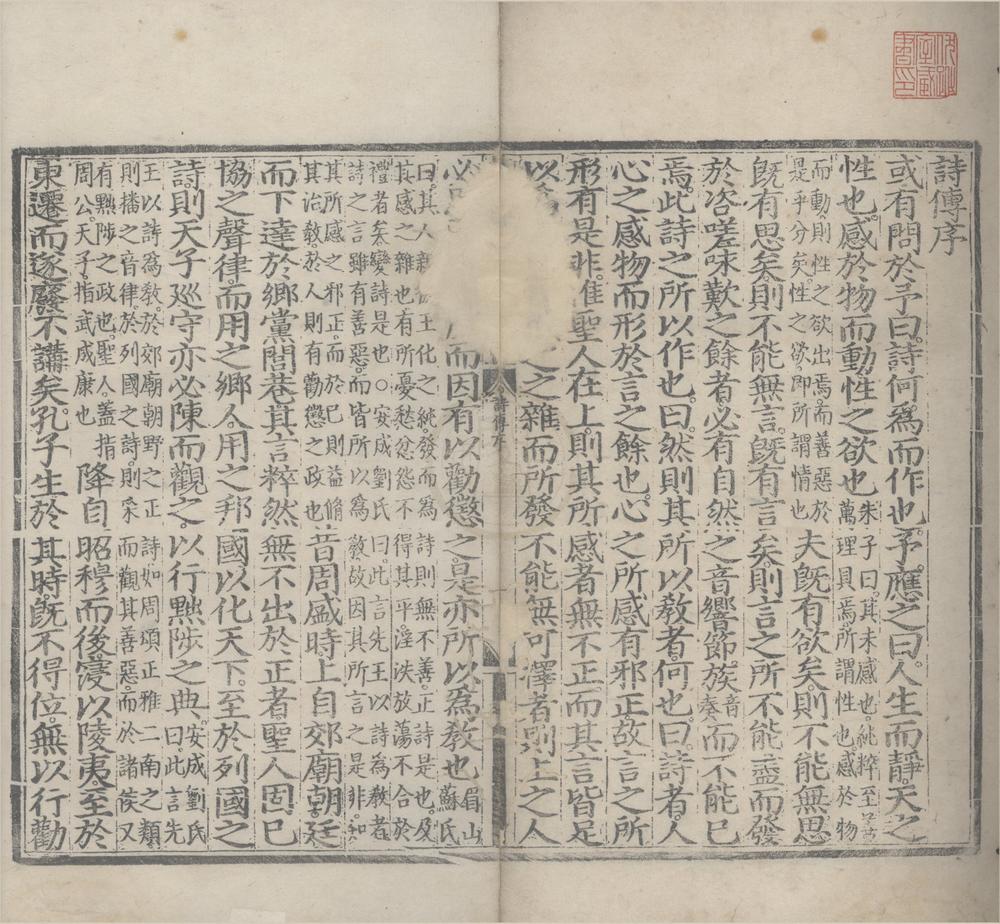 詩傳序
或有問於予曰詩何爲而作也予應之曰人生而靜天之
性也感於物而動性之欲也朱子曰其未感也純粹至善萬理具焉所謂性也感於物
而動則性之欲出焉而善惡於是乎分矣性之欲即所謂情也夫旣有欲矣則不能無思
旣有思矣則不能無言旣有言矣則言之所不能盡而發
於咨嗟咏歎之餘者必有自然之音響節族音奏而不能已
焉此詩之所以作也曰然則其所以敎者何也曰詩者人
心之感物而形於言之餘也心之所感有邪正故言之所
形有是非惟聖人在上則其所感者無不正而其言皆足
以之雜而所發不能無可澤者則上之人
詩傳序
必而因有以勸懲之是亦所以爲敎也眉山蘇氏
曰其人王化之純發而爲詩則無不善正詩是也及其感之雜也有所憂愁忿怨不得其平淫泆放蕩不合於
禮者矣變詩是也○安成劉氏曰此言先王以詩為敎者詩之言雖有善惡而皆所以為敎故因其所言之是非和
其所感之邪正而於己則益脩其治敎於人則有勸懲之政也昔周盛時上自郊廟朝廷
而下達於鄉黨閭巷其言粹然無不出於正者聖人固已
協之聲律而用之鄉人用之邦國以化天下至於列國之
詩則天子廵守亦必陳而觀之以行黜陟之典安成劉氏曰此言先
王以詩爲敎於郊廟朝野之正詩如周頌正雅二南之類則播之音律於列國之詩則采而觀其善惡而於諸侯又
有黜陟之政也聖人盖指周公天子指武成康也降自昭穆而後寖以陵夷至於
東遷而遂廢不講矣孔子生於其時旣不得位無以行勸